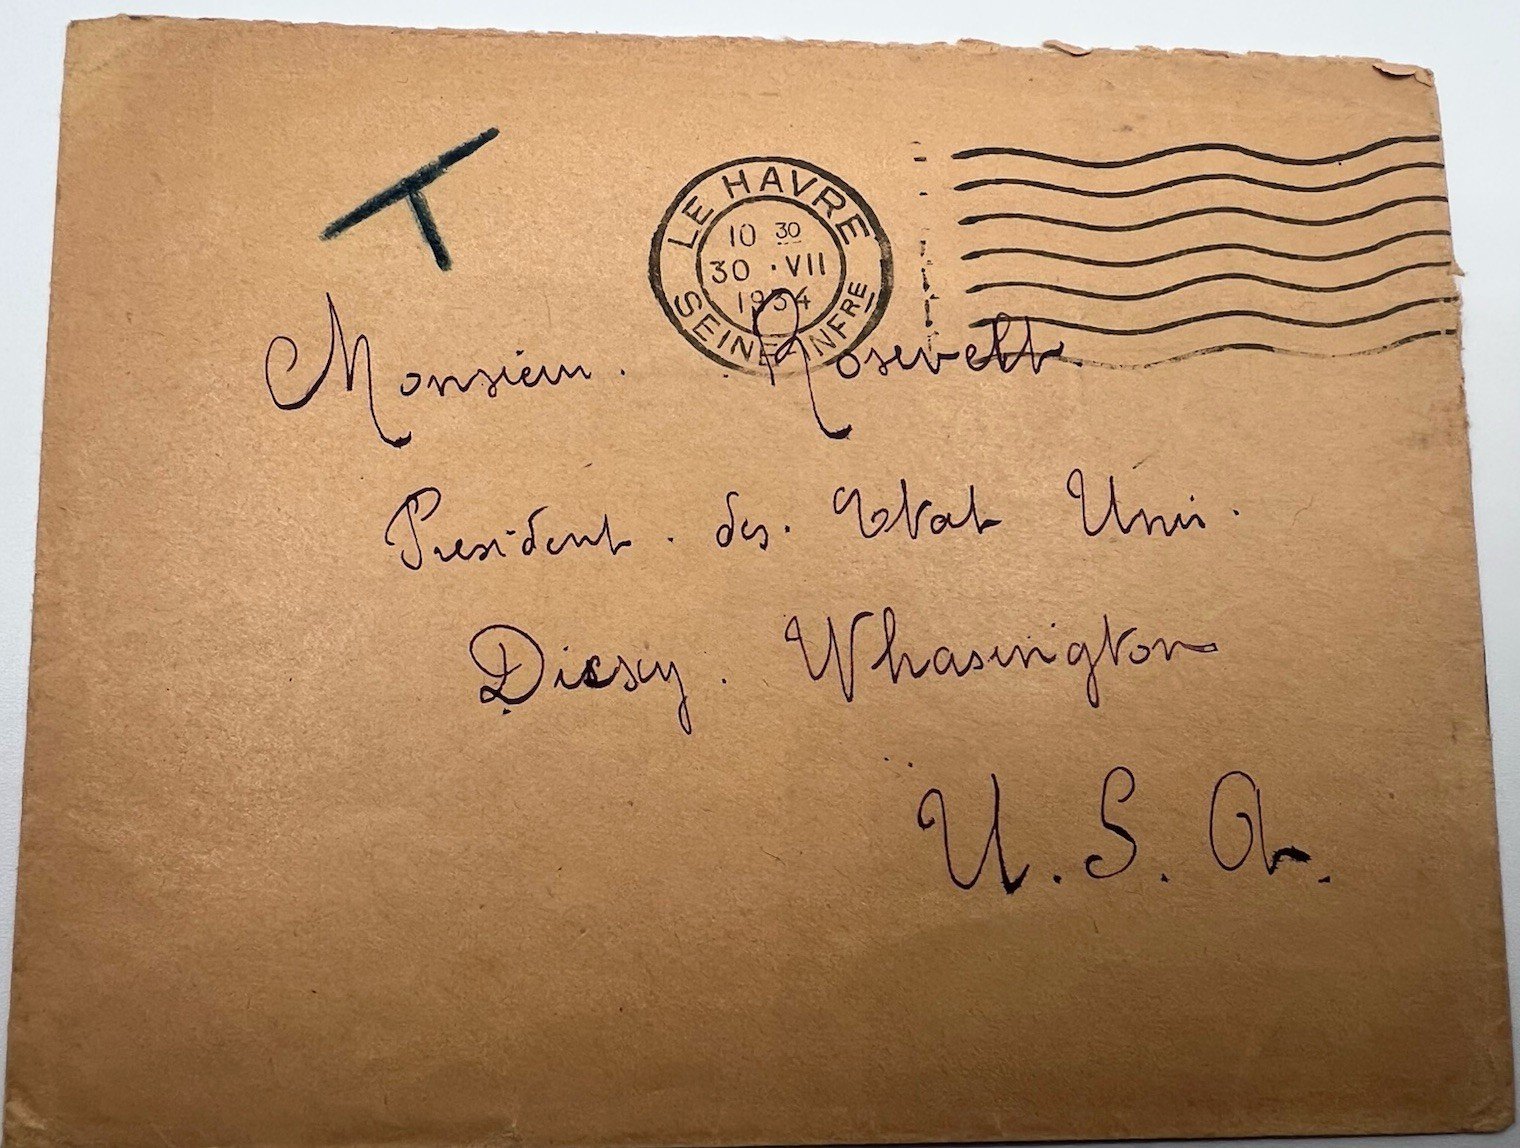 T
LE HAVRE
10 30
30 · VII
1934
SEINE INFRE
Monsieur. Rosevelt
President. des. Etat Unis.
Whasington
U. S. A.